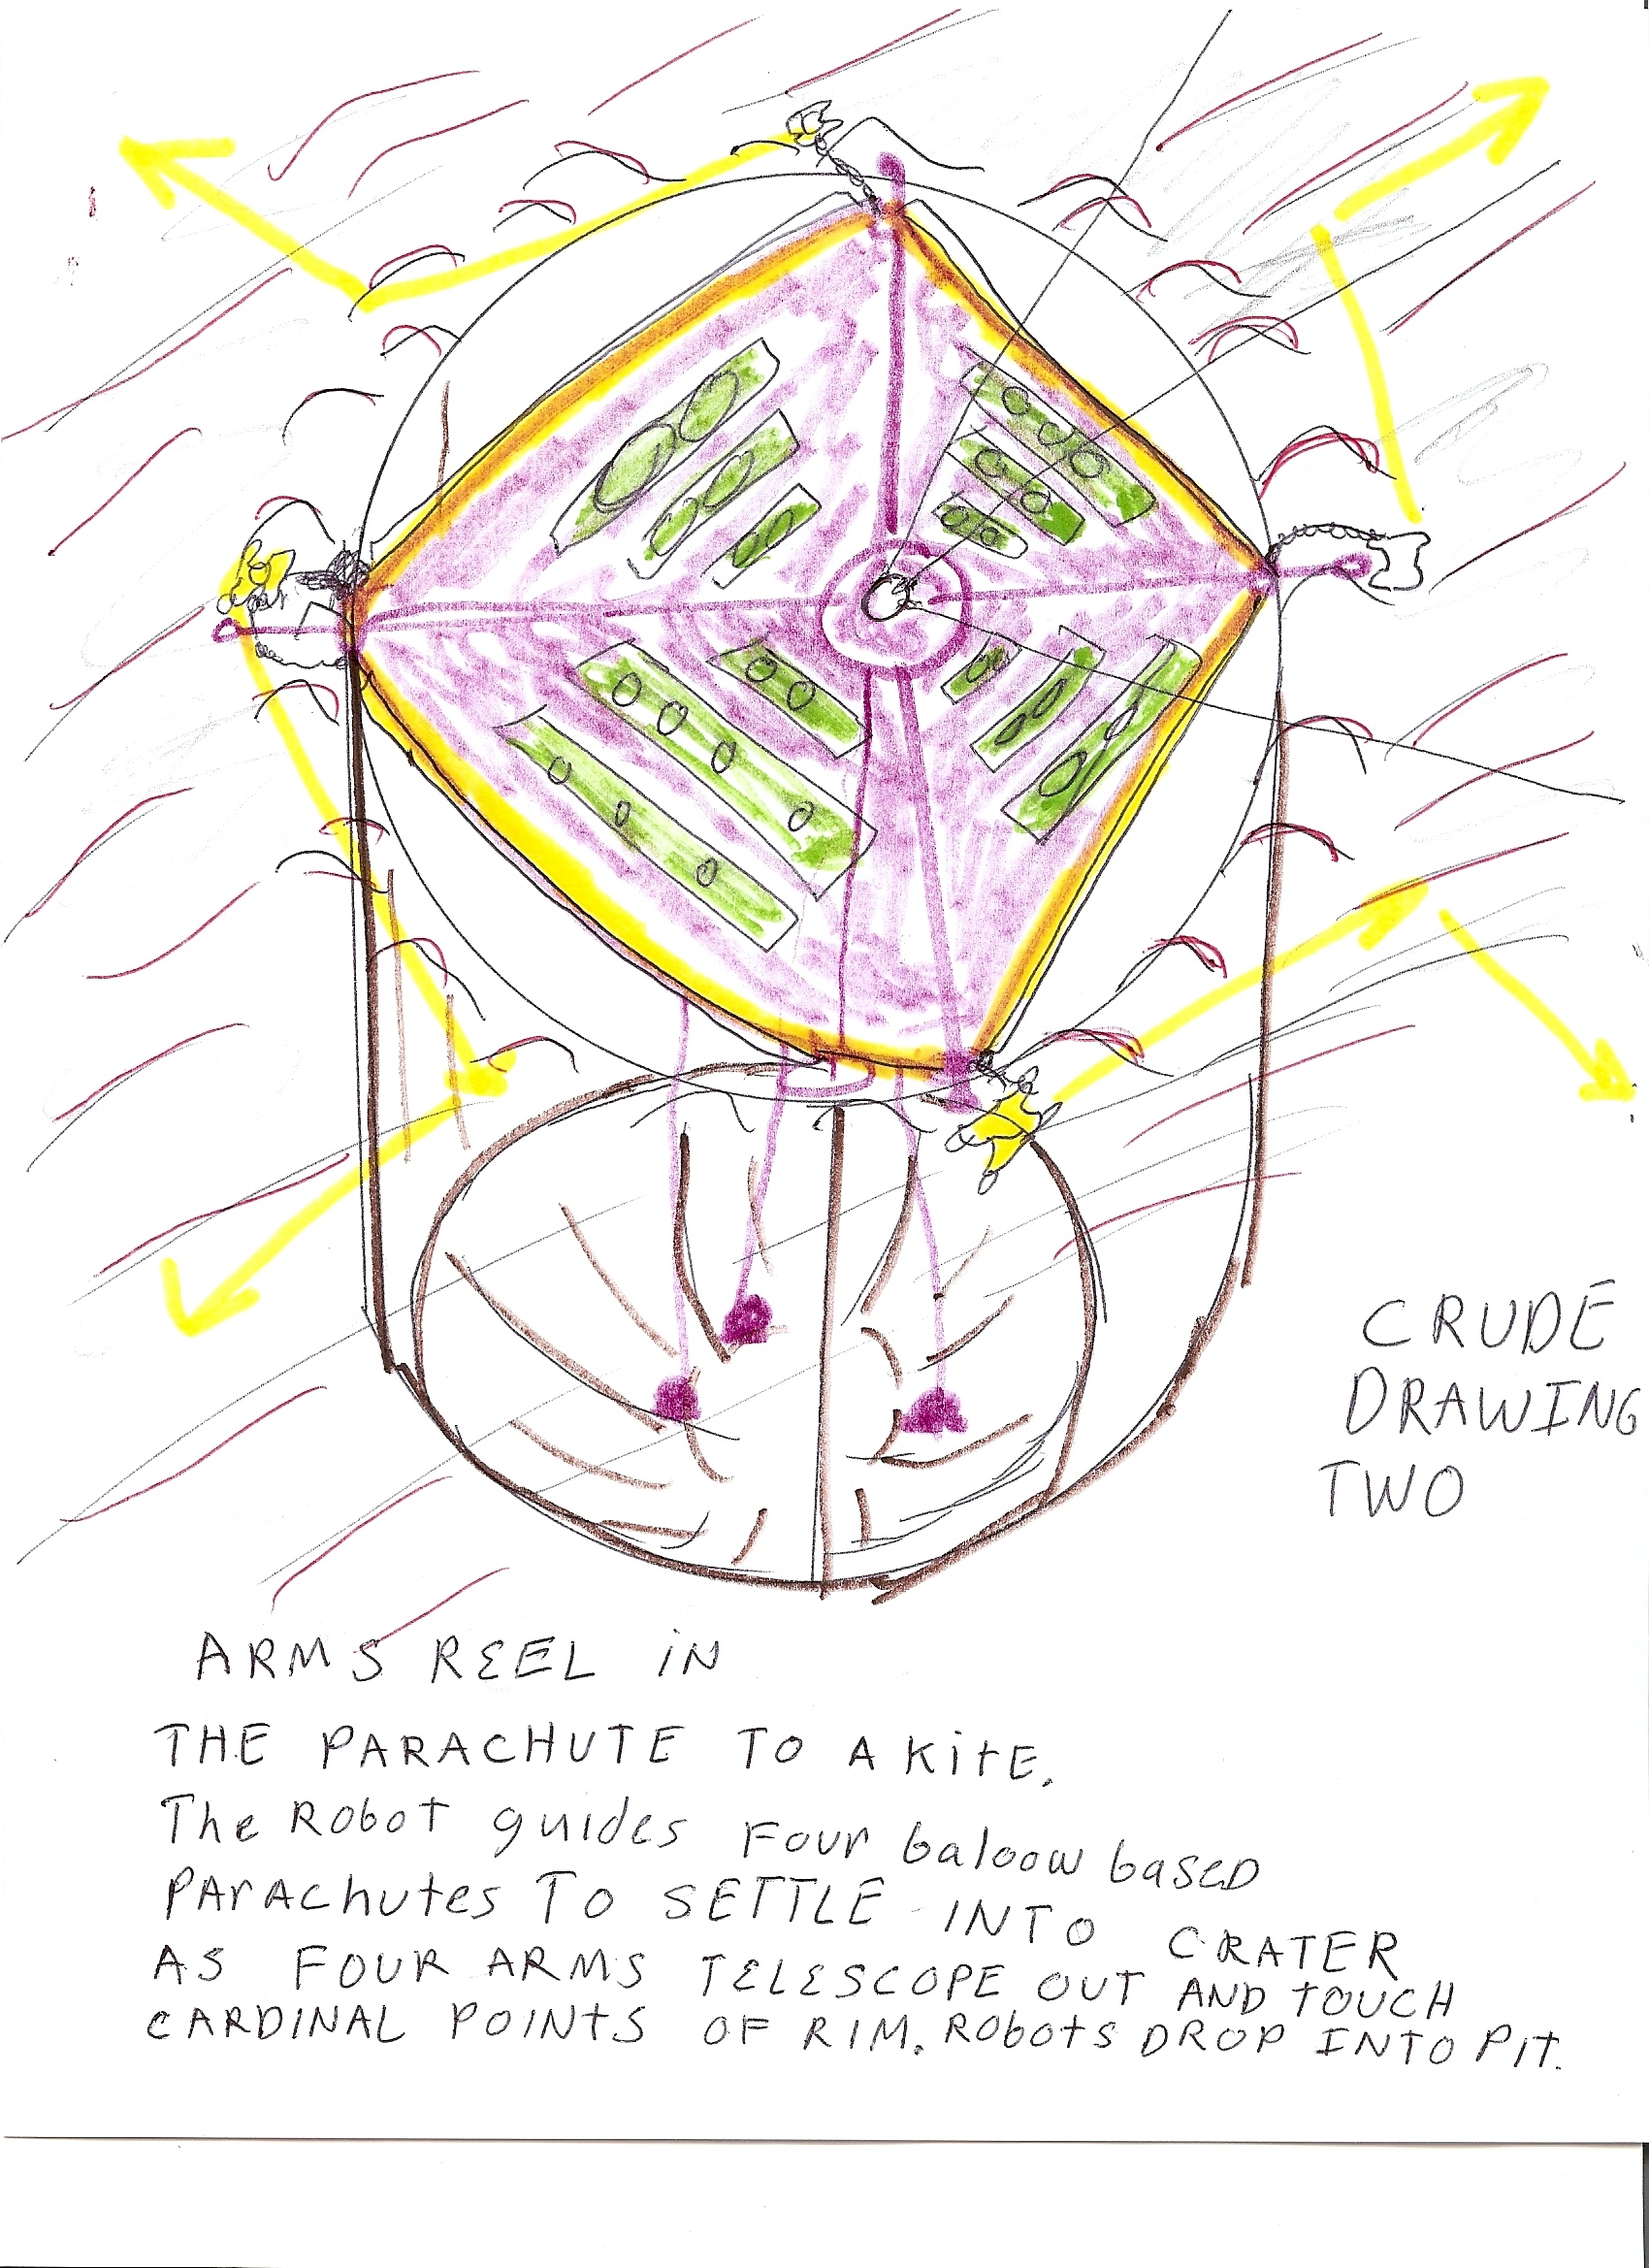 CRUDE
DRAWING
TWO
ARMS REEL iN
THE PARACHUTE TO A KitE.
The Robot guides Four baloow basED
PArAchutes To SETTLE INTO CRATER
AS FOUR ARMS TELESCOPE OUT AND tOUCH
CARDINAL POINtS OF RIM. RObOtS DROP INTO PIT.